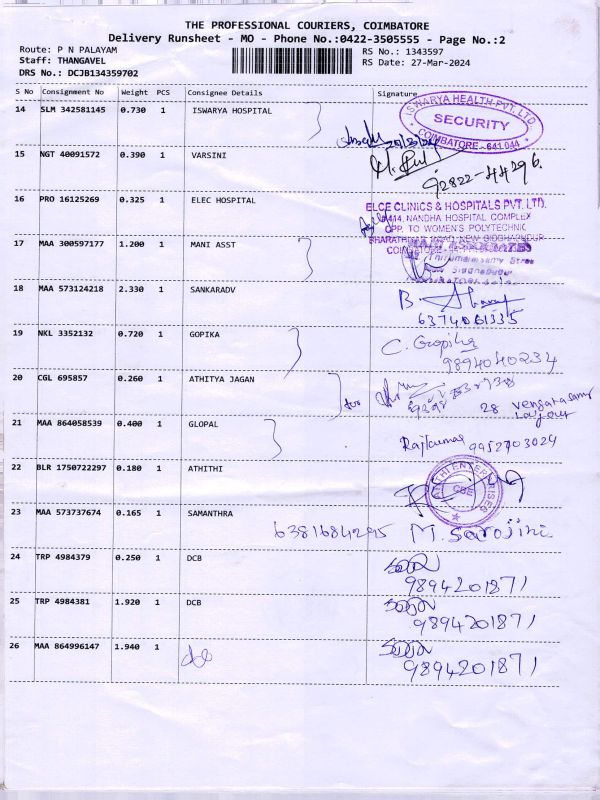 THE PROFESSIONAL COURIERS, COIMBATORE
Delivery Runsheet - MO - Phone No.:0422-3505555 - Page No.:2
Route: P N PALAYAM
RS No.: 1343597
Staff: THANGAVEL
RS Date: 27-Mar-2024
DRS No.: DCJB134359702
S No Consignment No Weight PCS Consignee Details Signature
14 SLM 342581145 0.730 1 ISWARYA HOSPITAL
ISWARYA HEALTH PVT. LTD.
SECURITY
COIMBATORE - 641 044
15 NGT 40091572 0.390 1 VARSINI
92822-44296.
16 PRO 16125269 0.325 1 ELEC HOSPITAL
ELCE CLINICS & HOSPITALS PVT. LTD.
NANDHA HOSPITAL COMPLEX
OPP. TO WOMEN'S POLYTECHNIC
17 MAA 300597177 1.200 1 MANI ASST
18 MAA 573124218 2.330 1 SANKARADV
B.
6374061335
19 NKL 3352132 0.720 1 GOPIKA
C. Gopika
9894040234
20 CGL 695857 0.260 1 ATHITYA JAGAN
28 Vengatasamy
Layout
21 MAA 864058539 0.400 1 GLOPAL
Rajkumar 9952703024
22 BLR 1750722297 0.180 1 ATHITHI
ENTERPRISES
CBE
23 MAA 573737674 0.165 1 SAMANTHRA
6381684295 M. Sarojini
24 TRP 4984379 0.250 1 DCB
9894201871
25 TRP 4984381 1.920 1 DCB
9894201871
26 MAA 864996147 1.940 1
9894201871